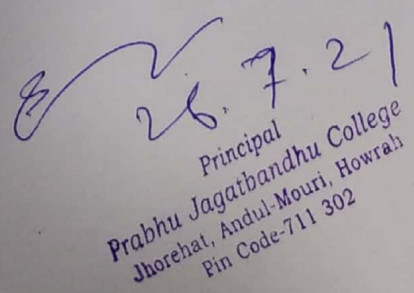 26.7.21
Principal
Prabhu Jagatbandhu College
Jhorehat, Andul-Mouri, Howrah
Pin Code-711 302